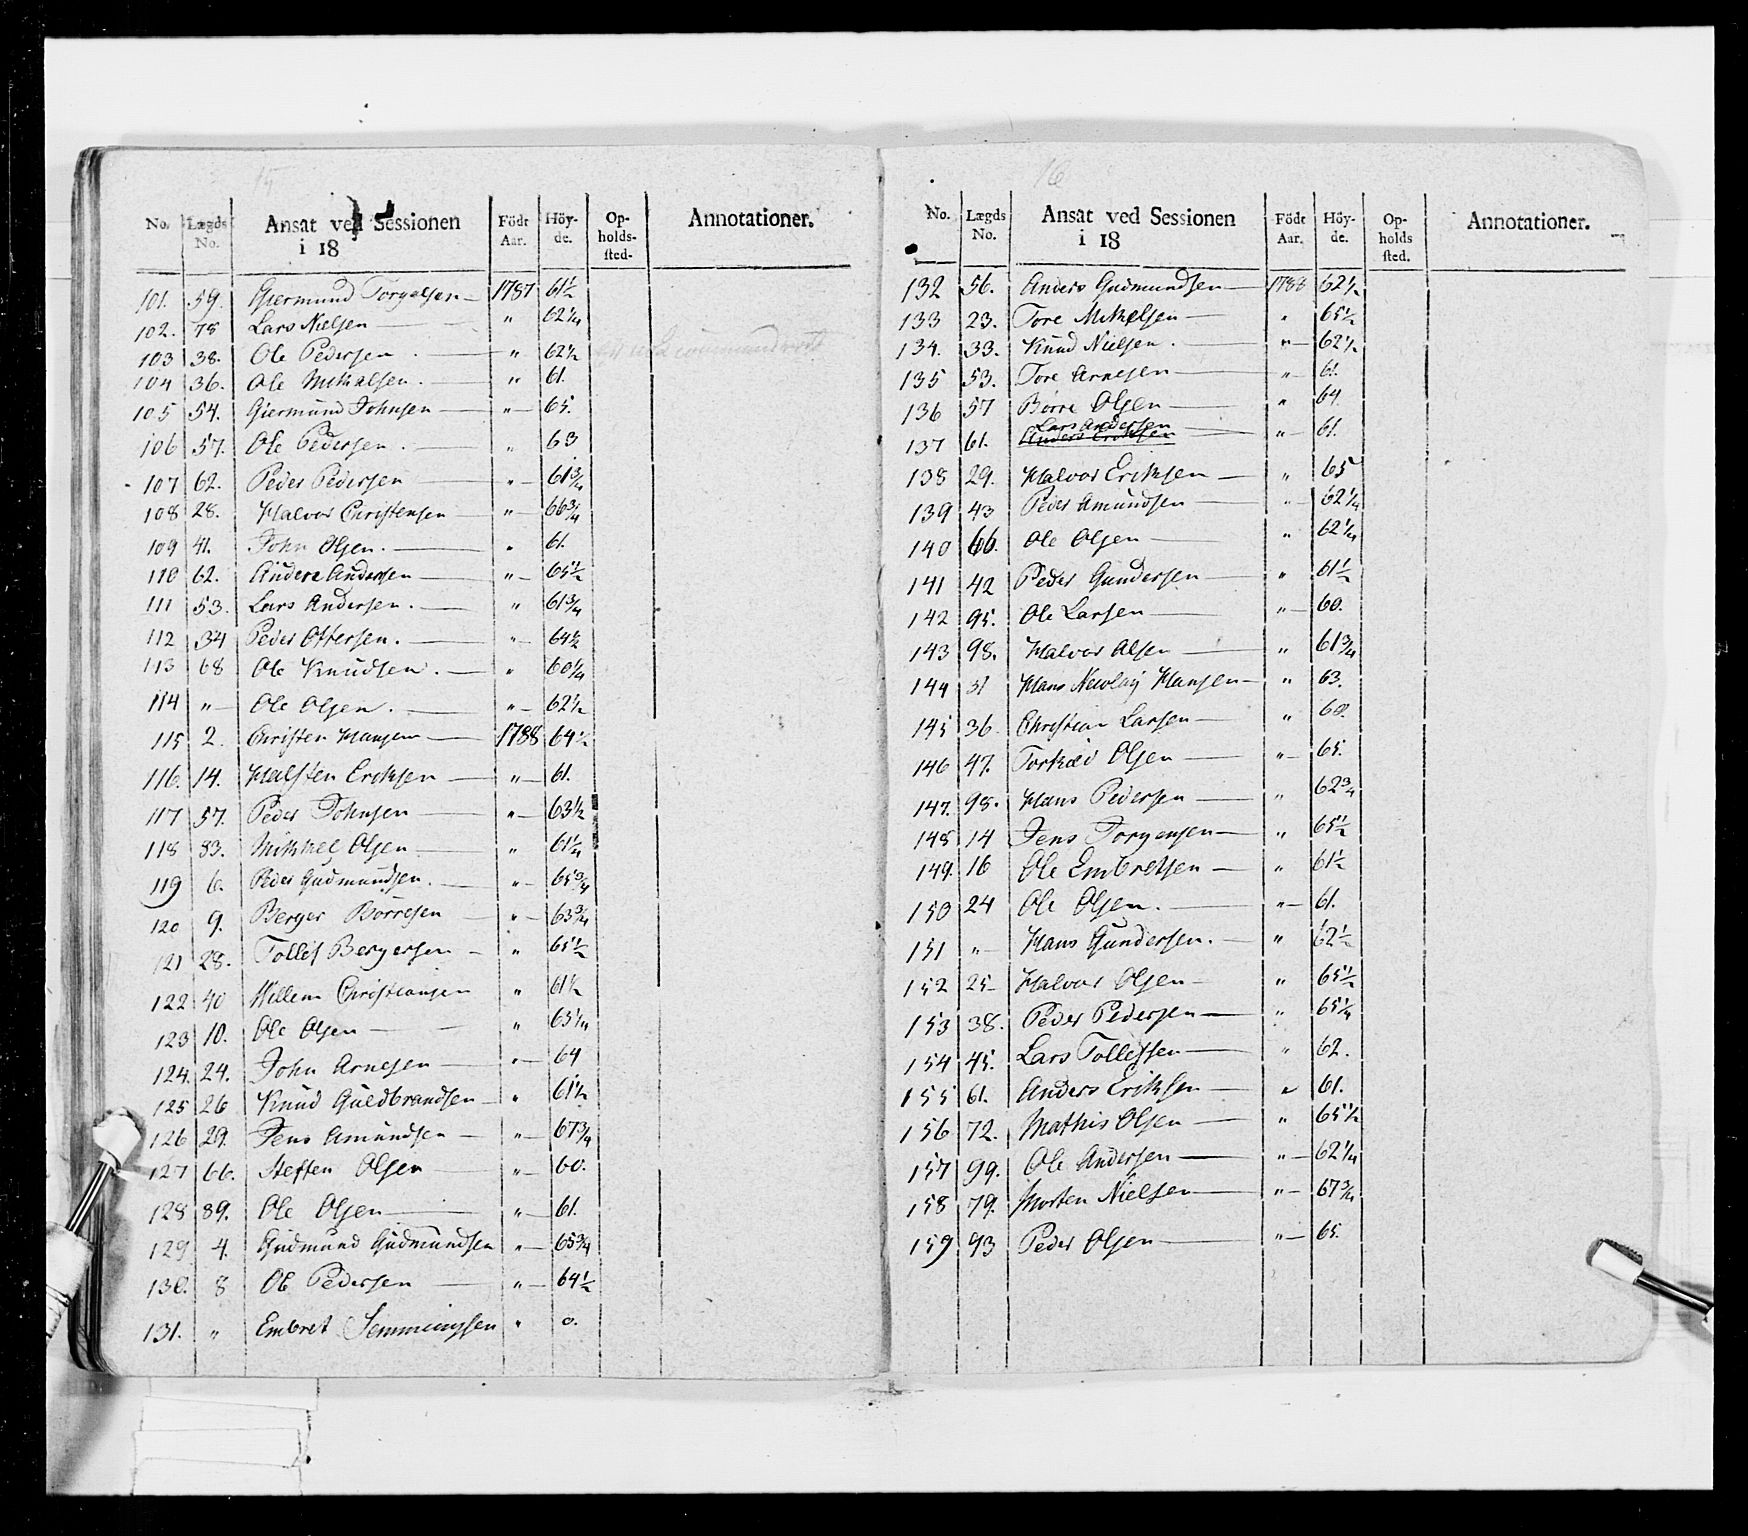 15
No. Lægds No. Ansat ved Sessionen i 18 Födt Aar. Höy-de. Op-holds-sted. Annotationer.
101. 59. Giermund Torgelsen — 1787 61½
102. 78 Lars Nielsen — " 62¼
103 38. Ole Pedersen . — " 62½
104 36. Ole Mikalsen . — " 61.
105 54. Giermund Johnsen — " — 65.
106 57. Ole Pedersen . — " 63
107 62. Peder Pedersen — " — 61¾
108 28. Halvor Christensen — " — 66¾
109 41. John Olsen . — " 61.
110 62. Anders Andersen — " — 65½
111 53. Lars Andersen . — " 61¾
112 34 Peder Ottersen . — " — 64½
113 68 Ole Knudsen . — " 60¼
114 " — Ole Olsen . — " — 62½
115 2. Christen Hansen — 1788 64½
116. 14. Halsten Eriksen — " — 61.
117 57. Peder Johnsen — " — 63½
118 83. Mikkel Olsen — " 61¼
119 6. Peder Gudmundsen . — " — 65¾
120 9. Berger Börresen — " — 63¾
121 28. Tollef Bergersen — " 65½
122 40 Willem Christiansen " 61½
123 10. Ole Olsen — " 65¼
124. 24. John Arnesen — " — 64
125 26 Knud Guldbrandsen — " 61½
126 29. Jens Amundsen — " — 67¾
127 66. Steffen Olsen — " — 60.
128 89. Ole Olsen — " — 61.
129 4. Gudmund Gudmundsen " — 65¾
130. 8 Ole Pedersen — " — 64½
131. " Embret Semmingsen " 0.
16
No. Lægds No. Ansat ved Sessionen i 18 Födt Aar. Höy-de. Op-holds sted. Annotationer.
132 56. Anders Gudmundsen — 1788 62½
133 23. Tore Mikelsen — " 65½
134. 33. Knud Nielsen . — " — 62½
135 53. Tore Arnesen — " — 61.
136 57 Börre Olsen — " 64.
Lars Andersen
137 61. Anders Eriksen — " — 61.
138 29. Halvor Eriksen — " 65
139 43 Peder Amundsen — " — 62¼
140 66. Ole Olsen — " 62¼
141 42 Peder Gundersen — " 61½
142 95. Ole Larsen — " — 60.
143 98. Halvor Olsen — " 61¾
144 31 Hans Nicolay Hansen — " 63.
145 36. Christian Larsen — " 60.
146 47. Torkæl Olsen — " — 65.
147. 98. Hans Pedersen — " 62¾
148 14 Jens Torgersen — " 65½
149. 16 Ole Embretsen — " 61½
150 24 Ole Olsen . — " — 61.
151 " — Hans Gundersen . — " 62½
152 25 — Halvor Olsen — " 65½
153 38. Peder Pedersen — " 65¼
154 45. Lars Tollefsen — " 62.
155 61. Anders Eriksen — " 61.
156 72. Mathis Olsen — " 65½
157 99. Ole Andersen — " — 62¼
158 79. Morten Nielsen — " — 67¾
159 93 Peder Olsen — " — 65.